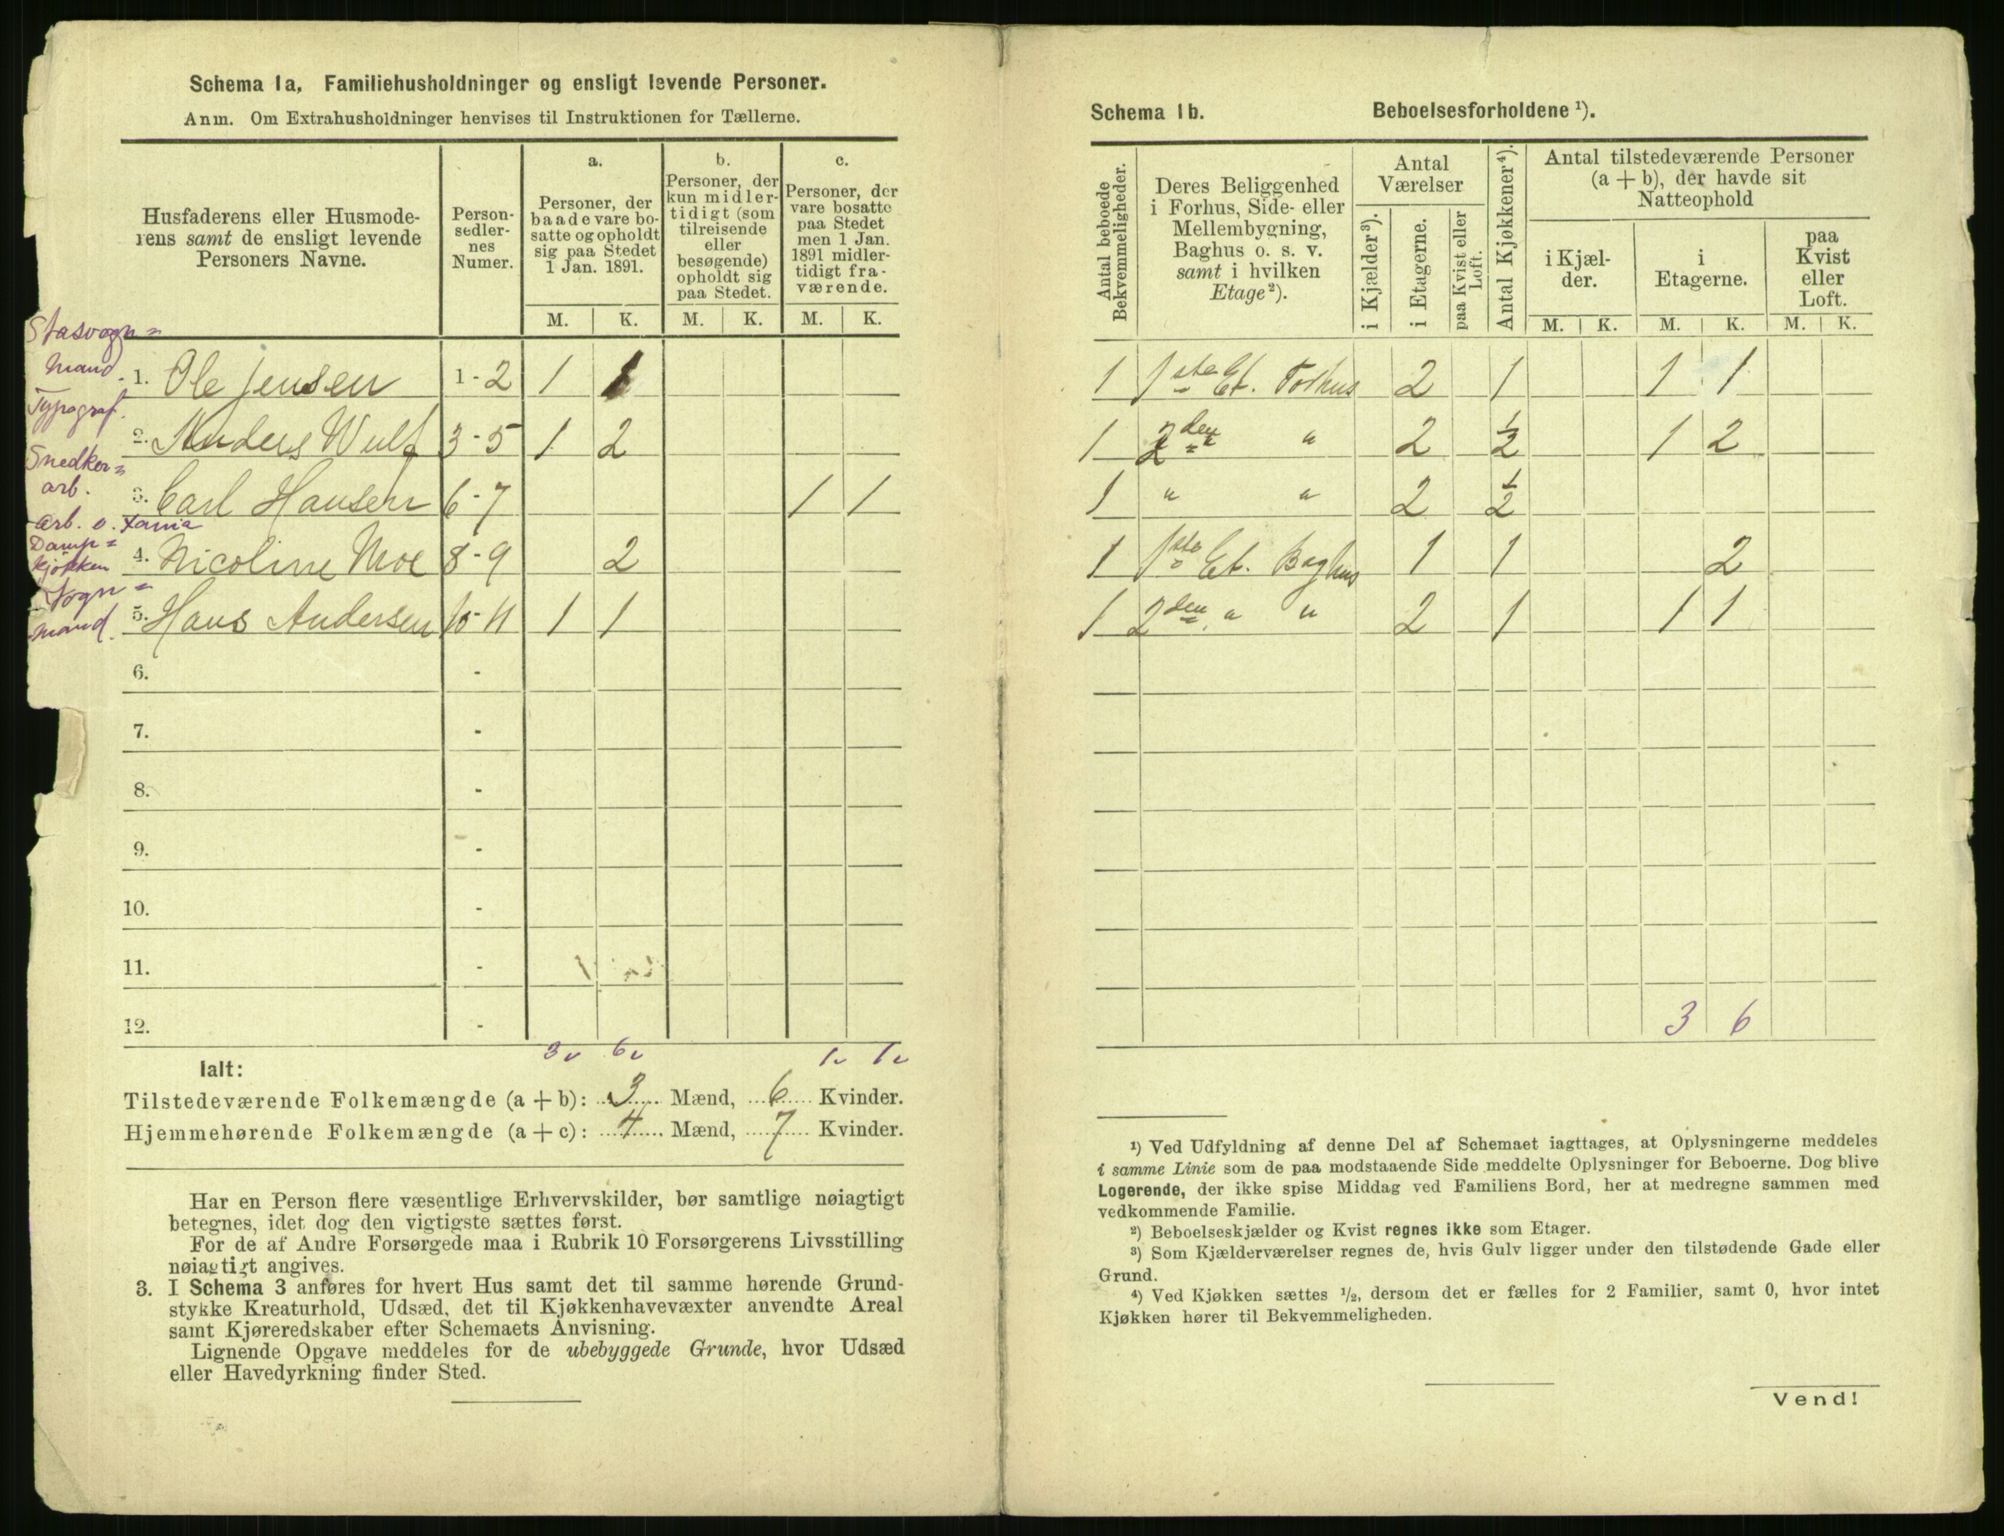 Schema 1a, Familiehusholdninger og ensligt levende Personer.
Anm. Om Extrahusholdninger henvises til Instruktionen for Tællerne.
Husfaderens eller Husmode-
rens samt de ensligt levende
Personers Navne.
Person-
sedler-
nes
Numer.
a.
Personer, der
baade vare bo-
satte og opholdt
sig paa Stedet
1 Jan. 1891.
b.
Personer, der
kun midler-
tidigt (som
tilreisende
eller
besøgende)
opholdt sig
paa Stedet.
c.
Personer, der
vare bosatte
paa Stedet
men 1 Jan.
1891 midler-
tidigt fra-
værende.
M. K. M. K. M. K.
Stasvogn=
mand.
1. Ole Jensen 1-2 1 1
Typograf.
2. Anders Wulf 3-5 1 2
Snedker=
arb.
3. Carl Hansen 6-7 1 1
arb. v. Xania
Damp=
kjøkken
4. Nicoline Moe 8-9 2
Vogn=
mand.
5. Hans Andersen 10-11 1 1
6. -
7. -
8. -
9. -
10. -
11. -
12. -
3 6 1 1
Ialt:
Tilstedeværende Folkemængde (a + b): 3 Mænd, 6 Kvinder.
Hjemmehørende Folkemængde (a + c): 4 Mænd, 7 Kvinder.
Har en Person flere væsentlige Erhvervskilder, bør samtlige nøiagtigt
betegnes, idet dog den vigtigste sættes først.
For de af Andre Forsørgede maa i Rubrik 10 Forsørgerens Livsstilling
nøiagtigt angives.
3. I Schema 3 anføres for hvert Hus samt det til samme hørende Grund-
stykke Kreaturhold, Udsæd, det til Kjøkkenhavevæxter anvendte Areal
samt Kjøreredskaber efter Schemaets Anvisning.
Lignende Opgave meddeles for de ubebyggede Grunde, hvor Udsæd
eller Havedyrkning finder Sted.
Schema 1b. Beboelsesforholdene ¹).
Antal beboede
Bekvemmeligheder.
Deres Beliggenhed
i Forhus, Side- eller
Mellembygning,
Baghus o. s. v.
samt i hvilken
Etage²).
Antal
Værelser
i Kjælder³).
i Etagerne.
paa Kvist eller
Loft.
Antal Kjøkkener⁴).
Antal tilstedeværende Personer
(a + b), der havde sit
Natteophold
i Kjæl-
der.
i
Etagerne.
paa
Kvist
eller
Loft.
M. K. M. K. M. K.
1 1ste Et. Forhus 2 1 1 1
1 2den " 2 1/2 1 2
1 " " 2 1/2
1 1ste Et. Baghus 1 1 2
1 2den " " 2 1 1 1
3 6
¹) Ved Udfyldning af denne Del af Schemaet iagttages, at Oplysningerne meddeles
i samme Linie som de paa modstaaende Side meddelte Oplysninger for Beboerne. Dog blive
Logerende, der ikke spise Middag ved Familiens Bord, her at medregne sammen med
vedkommende Familie.
²) Beboelseskjælder og Kvist regnes ikke som Etager.
³) Som Kjælderværelser regnes de, hvis Gulv ligger under den tilstødende Gade eller
Grund.
⁴) Ved Kjøkken sættes ½, dersom det er fælles for 2 Familier, samt 0, hvor intet
Kjøkken hører til Bekvemmeligheden.
Vend!